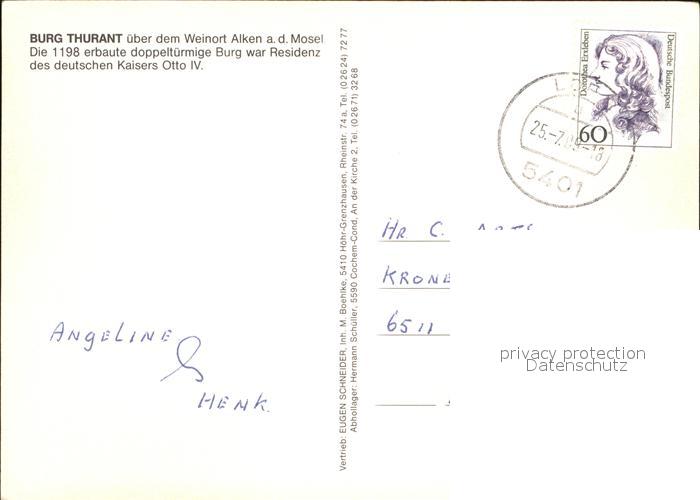 BURG THURANT über dem Weinort Alken a. d. Mosel
Die 1198 erbaute doppeltürmige Burg war Residenz
des deutschen Kaisers Otto IV.
ANGELINE
&
HENK.
Vertrieb: EUGEN SCHNEIDER, Inh. M. Boehlke, 5410 Höhr-Grenzhausen, Rheinstr. 74 a, Tel. (0 26 24) 72 77
Abhollager: Hermann Schüller, 5590 Cochem-Cond, An der Kirche 2, Tel. (0 26 71) 32 68
Dorothea Erxleben
Deutsche Bundespost
60
25.-7.
-18
5401
HR C.
KRONE
6511
privacy protection
Datenschutz